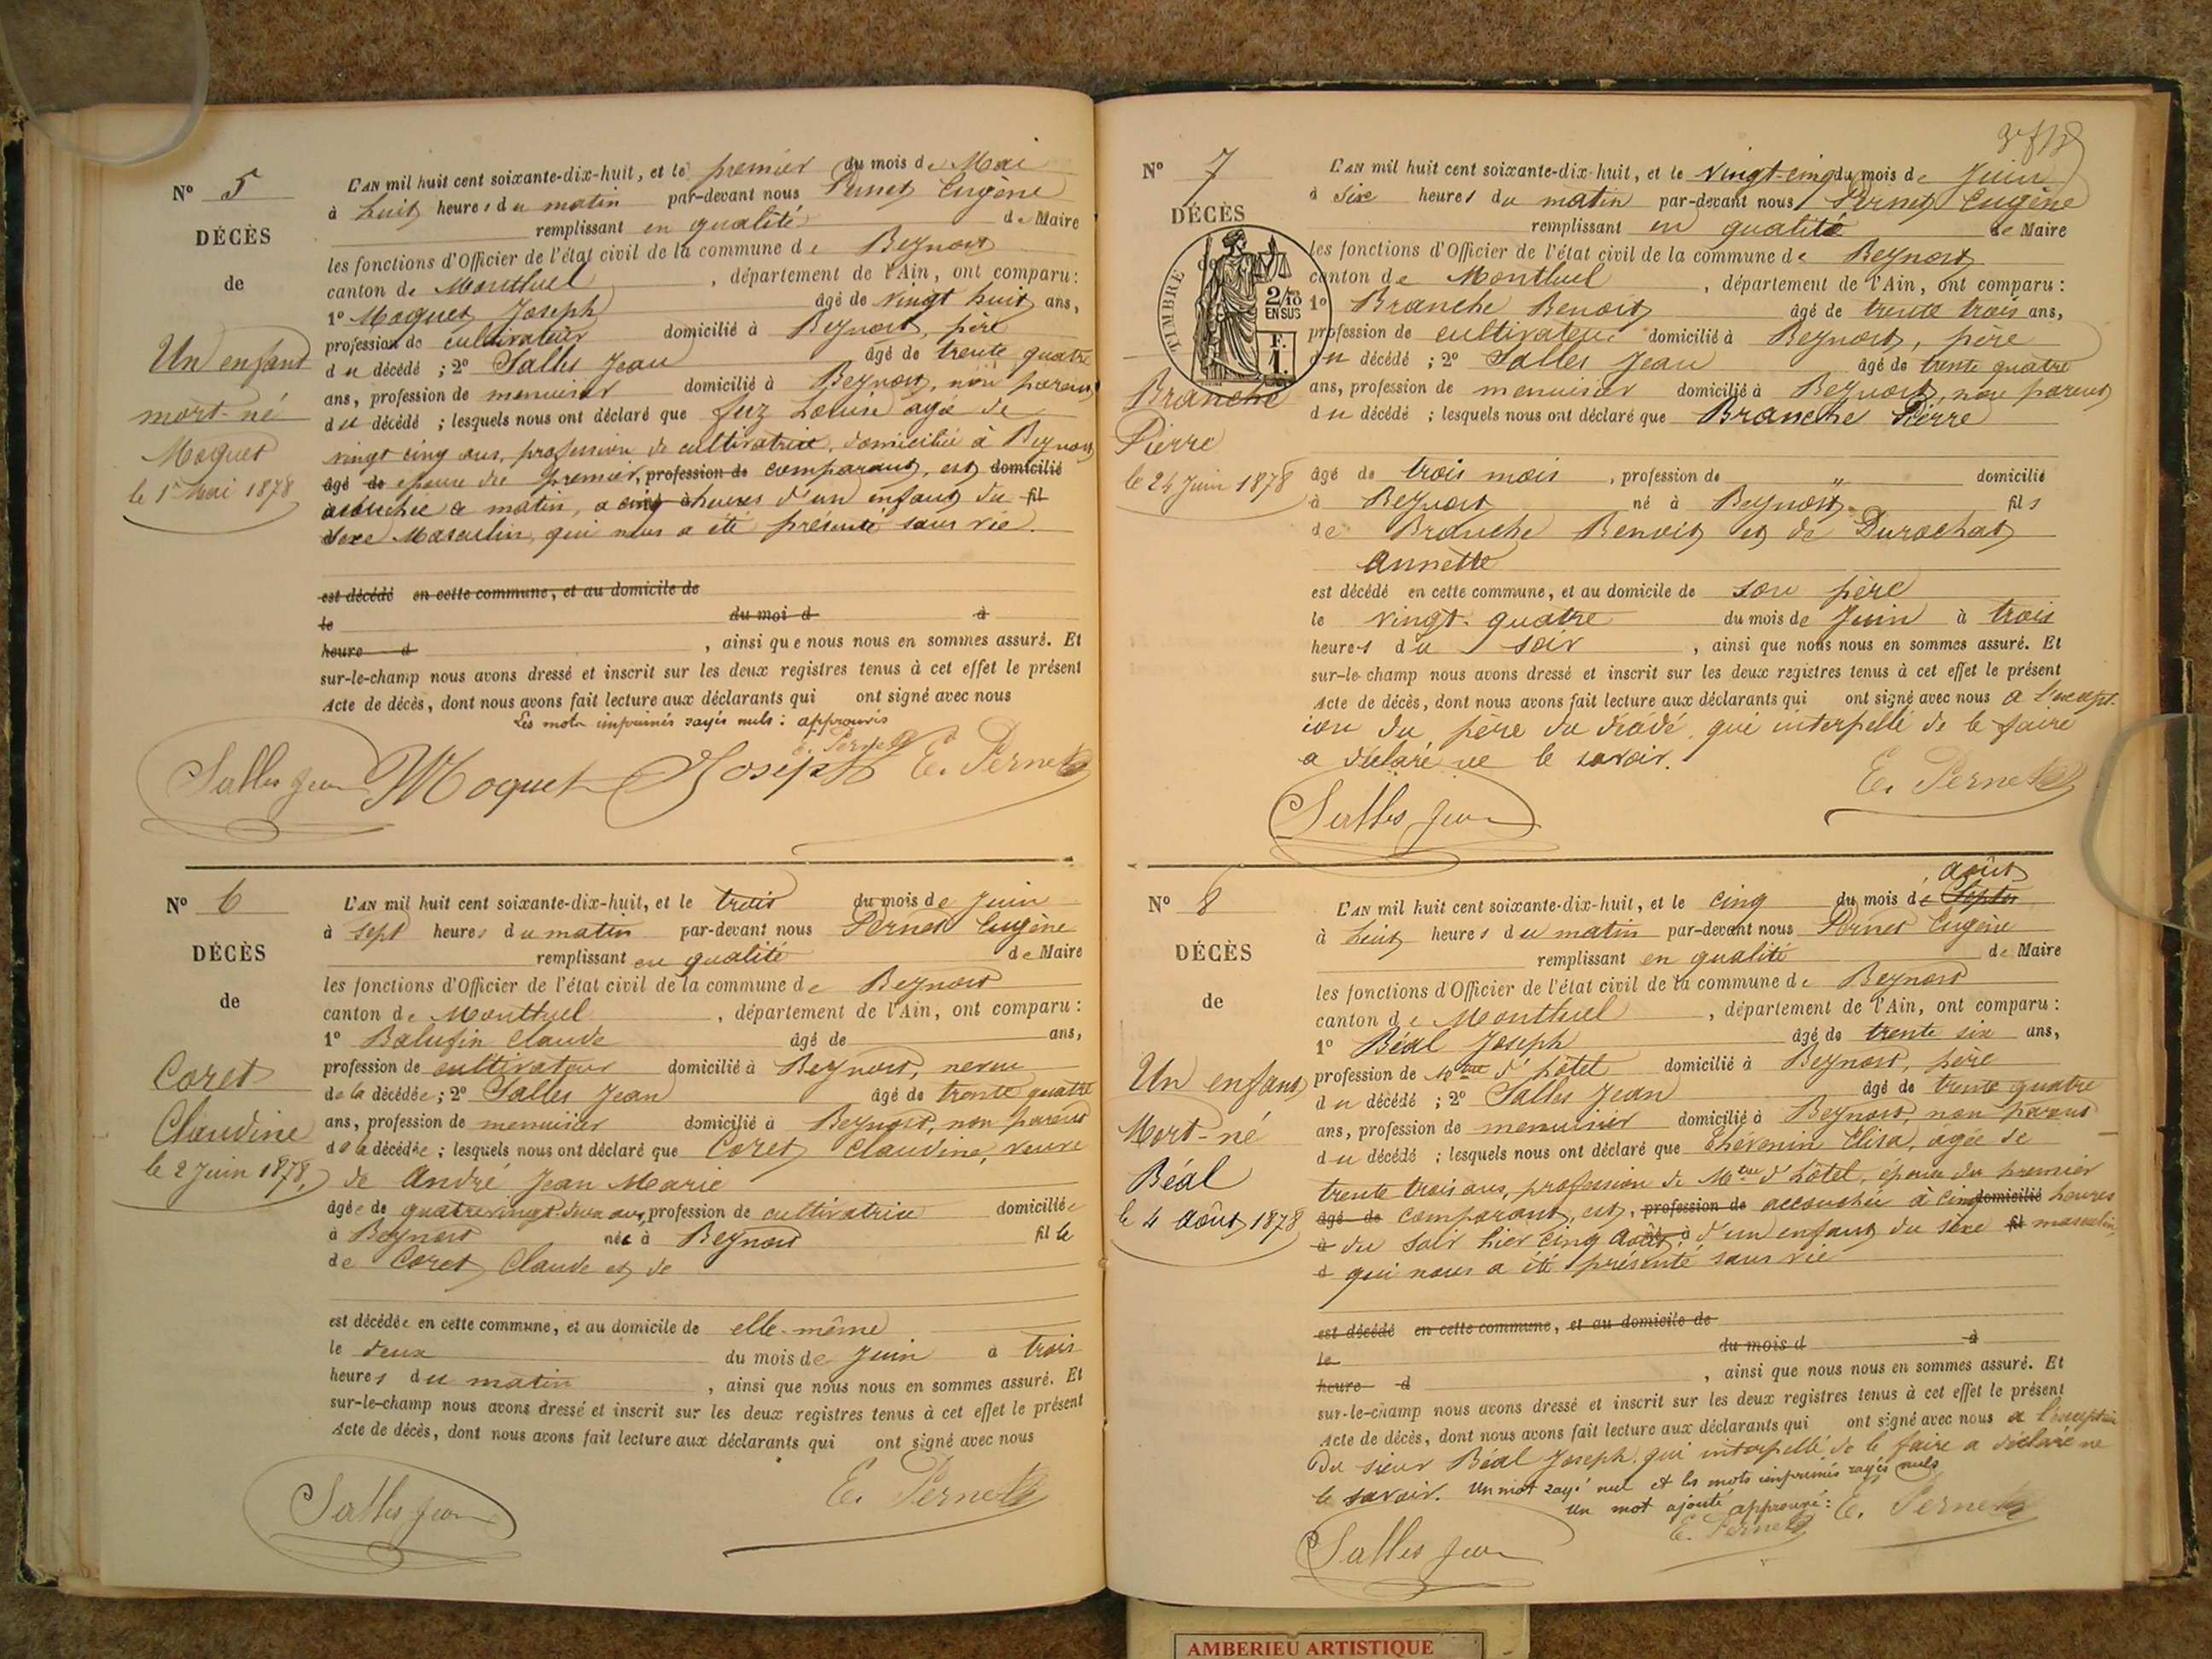 N° 5
DÉCÈS
de
Un enfant
mort-né
Moquet
le 1er Mai 1878
L'AN mil huit cent soixante-dix-huit, et le premier du mois de Mai
à huit heures du matin par-devant nous Pernet Eugène
remplissant en qualité de Maire
les fonctions d'Officier de l'état civil de la commune de Beynost
canton de Montluel, département de l'Ain, ont comparu :
1° Moquet Joseph âgé de vingt huit ans,
profession de cultivateur domicilié à Beynost, père
du décédé ; 2° Salles Jean âgé de trente quatre
ans, profession de menuisier domicilié à Beynost, non parent
du décédé ; lesquels nous ont déclaré que Juz Louise âgée de
vingt cinq ans, profession de cultivatrice, domiciliée à Beynost
âgé de épouse du premier, profession de comparant, est domicilié
accouchée ce matin, à cinq heures d'un enfant du fil
sexe Masculin, qui nous a été présenté sans vie.
est décédé en cette commune, et au domicile de
le du moi d à
heure d , ainsi que nous nous en sommes assuré. Et
sur-le-champ nous avons dressé et inscrit sur les deux registres tenus à cet effet le présent
Acte de décès, dont nous avons fait lecture aux déclarants qui ont signé avec nous
Les mots imprimés rayés nuls : approuvés
E. Pernet
Salles Jean Moquet Joseph E. Pernet
N° 6
DÉCÈS
de
Coret
Claudine
le 2 Juin 1878,
L'AN mil huit cent soixante-dix-huit, et le trois du mois de Juin
à sept heures du matin par-devant nous Pernet Eugène
remplissant en qualité de Maire
les fonctions d'Officier de l'état civil de la commune de Beynost
canton de Montluel, département de l'Ain, ont comparu :
1° Balufin Claude âgé de ans,
profession de cultivateur domicilié à Beynost, neveu
de la décédée ; 2° Salles Jean âgé de trente quatre
ans, profession de menuisier domicilié à Beynost, non parent
de la décédée ; lesquels nous ont déclaré que Coret Claudine, veuve
de André Jean Marie
âgée de quatrevingt deux ans, profession de cultivatrice domiciliée
à Beynost née à Beynost fille
de Coret Claude et de
est décédée en cette commune, et au domicile de elle-même
le deux du mois de Juin à trois
heures du matin, ainsi que nous nous en sommes assuré. Et
sur-le-champ nous avons dressé et inscrit sur les deux registres tenus à cet effet le présent
Acte de décès, dont nous avons fait lecture aux déclarants qui ont signé avec nous
Salles Jean E. Pernet
N° 7
DÉCÈS
de
TIMBRE
2/10
EN SUS
F.
1.
Branche
Pierre
le 24 Juin 1878
L'AN mil huit cent soixante-dix-huit, et le vingt-cinq du mois de Juin
à six heures du matin par-devant nous Pernet Eugène
remplissant en qualité de Maire
les fonctions d'Officier de l'état civil de la commune de Beynost
canton de Montluel, département de l'Ain, ont comparu :
1° Branche Benoit âgé de trente trois ans,
profession de cultivateur domicilié à Beynost, père
du décédé ; 2° Salles Jean âgé de trente quatre
ans, profession de menuisier domicilié à Beynost, non parent
du décédé ; lesquels nous ont déclaré que Branche Pierre
âgé de trois mois, profession de " domicilié
à Beynost né à Beynost fils
de Branche Benoit et de Durochat
Annette
est décédé en cette commune, et au domicile de son père
le vingt-quatre du mois de Juin à trois
heures du soir, ainsi que nous nous en sommes assuré. Et
sur-le-champ nous avons dressé et inscrit sur les deux registres tenus à cet effet le présent
Acte de décès, dont nous avons fait lecture aux déclarants qui ont signé avec nous à l'except-
ion du père du décédé, qui interpellé de le faire
a déclaré ne le savoir.
E. Pernet
Salles Jean
N° 8
DÉCÈS
de
Un enfant
Mort-né
Béal
le 4 Août 1878
août
L'AN mil huit cent soixante-dix-huit, et le cinq du mois de Septbr
à huit heures du matin par-devant nous Pernet Eugène
remplissant en qualité de Maire
les fonctions d'Officier de l'état civil de la commune de Beynost
canton de Montluel, département de l'Ain, ont comparu :
1° Béal Joseph âgé de trente six ans,
profession de Mtre d'hôtel domicilié à Beynost, père
du décédé ; 2° Salles Jean âgé de trente quatre
ans, profession de menuisier domicilié à Beynost, non parent
du décédé ; lesquels nous ont déclaré que Thévenin Elisa, âgée de
trente trois ans, profession de Mtre d'hôtel, épouse du premier
âgé de comparant, est, profession de accouchée à cinq domicilié heures
à du soir hier cinq Août, né à d'un enfant du sexe fil masculin,
d qui nous a été présenté sans vie
est décédé en cette commune, et au domicile de
le du mois d à
heure d , ainsi que nous nous en sommes assuré. Et
sur-le-champ nous avons dressé et inscrit sur les deux registres tenus à cet effet le présent
Acte de décès, dont nous avons fait lecture aux déclarants qui ont signé avec nous à l'exception
du sieur Béal Joseph, qui interpellé de le faire a déclaré ne
le savoir. Un mot rayé nul et les mots imprimés rayés nuls
Un mot ajouté approuvé : E. Pernet
E. Pernet
Salles Jean
AMBERIEU ARTISTIQUE